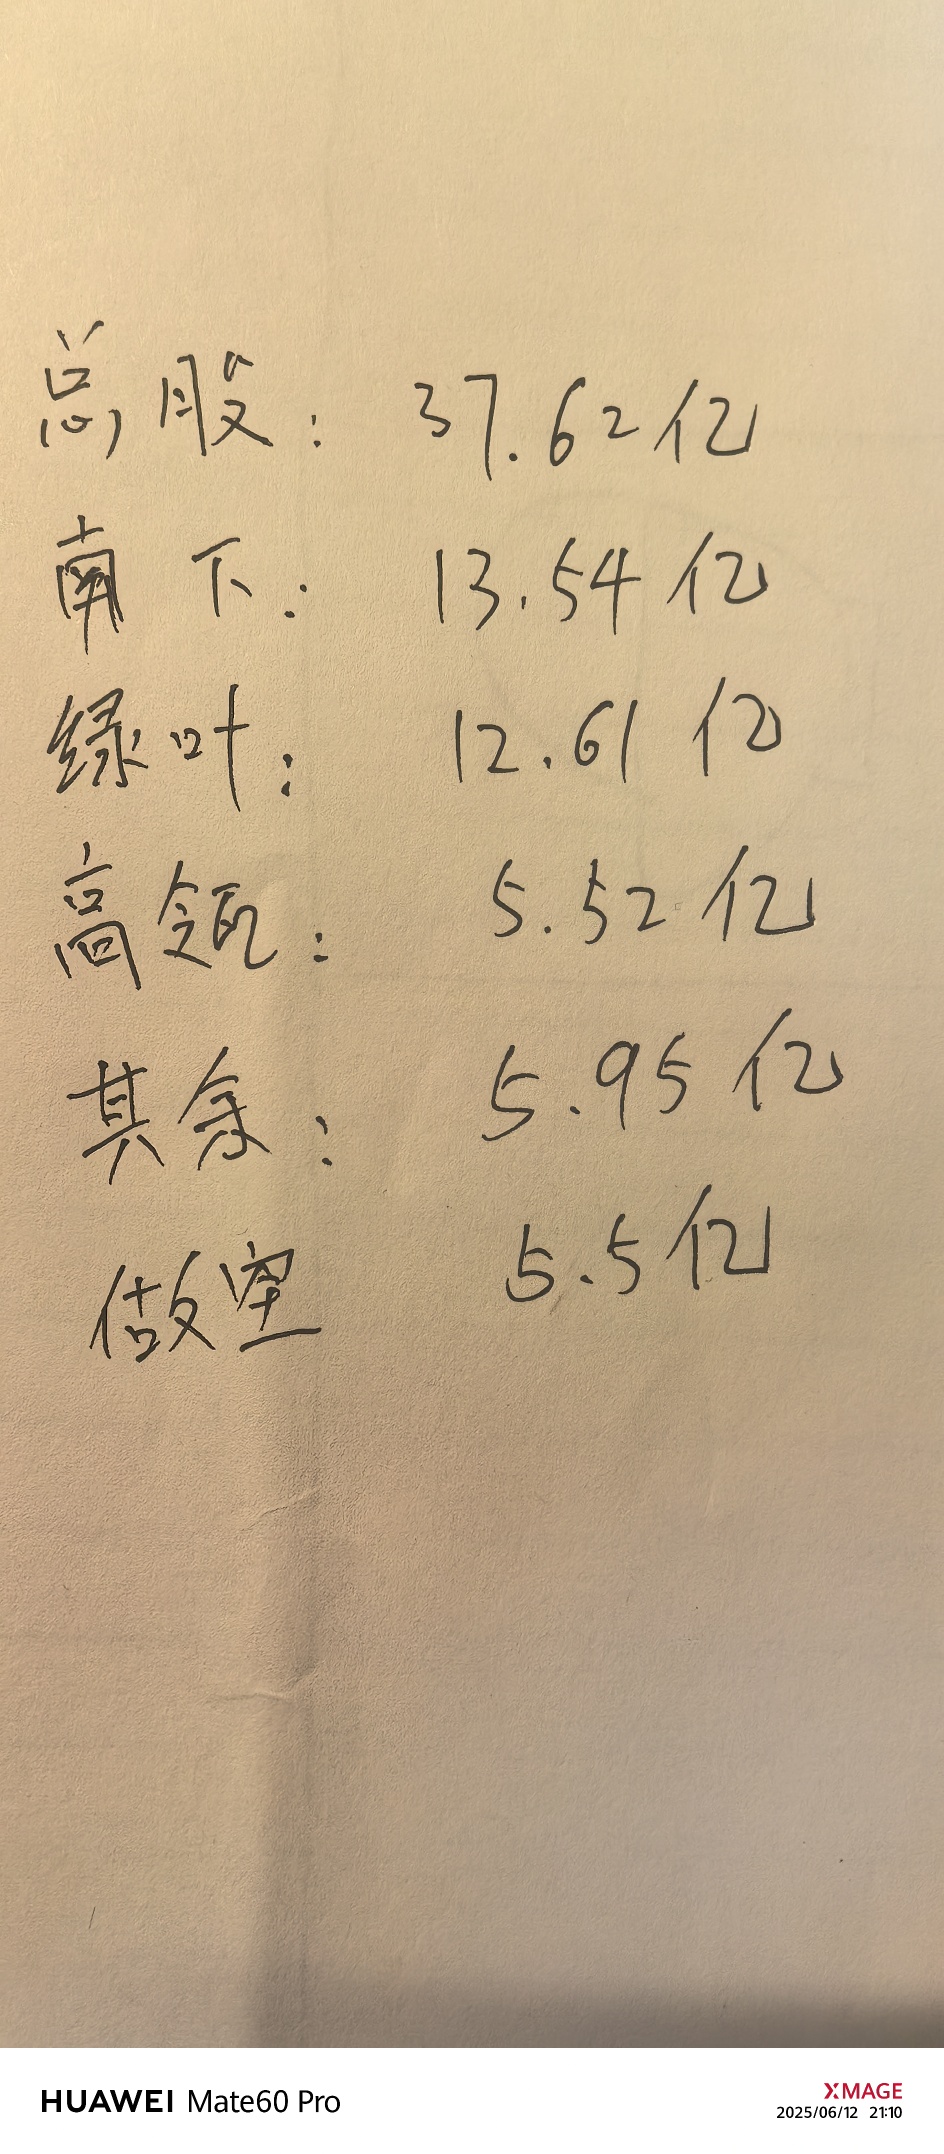 总股：37.62亿
南下：13.54亿
绿叶：12.61亿
高瓴：5.52亿
其余：5.95亿
做空 5.5亿
HUAWEI Mate60 Pro
XMAGE
2025/06/12 21:10